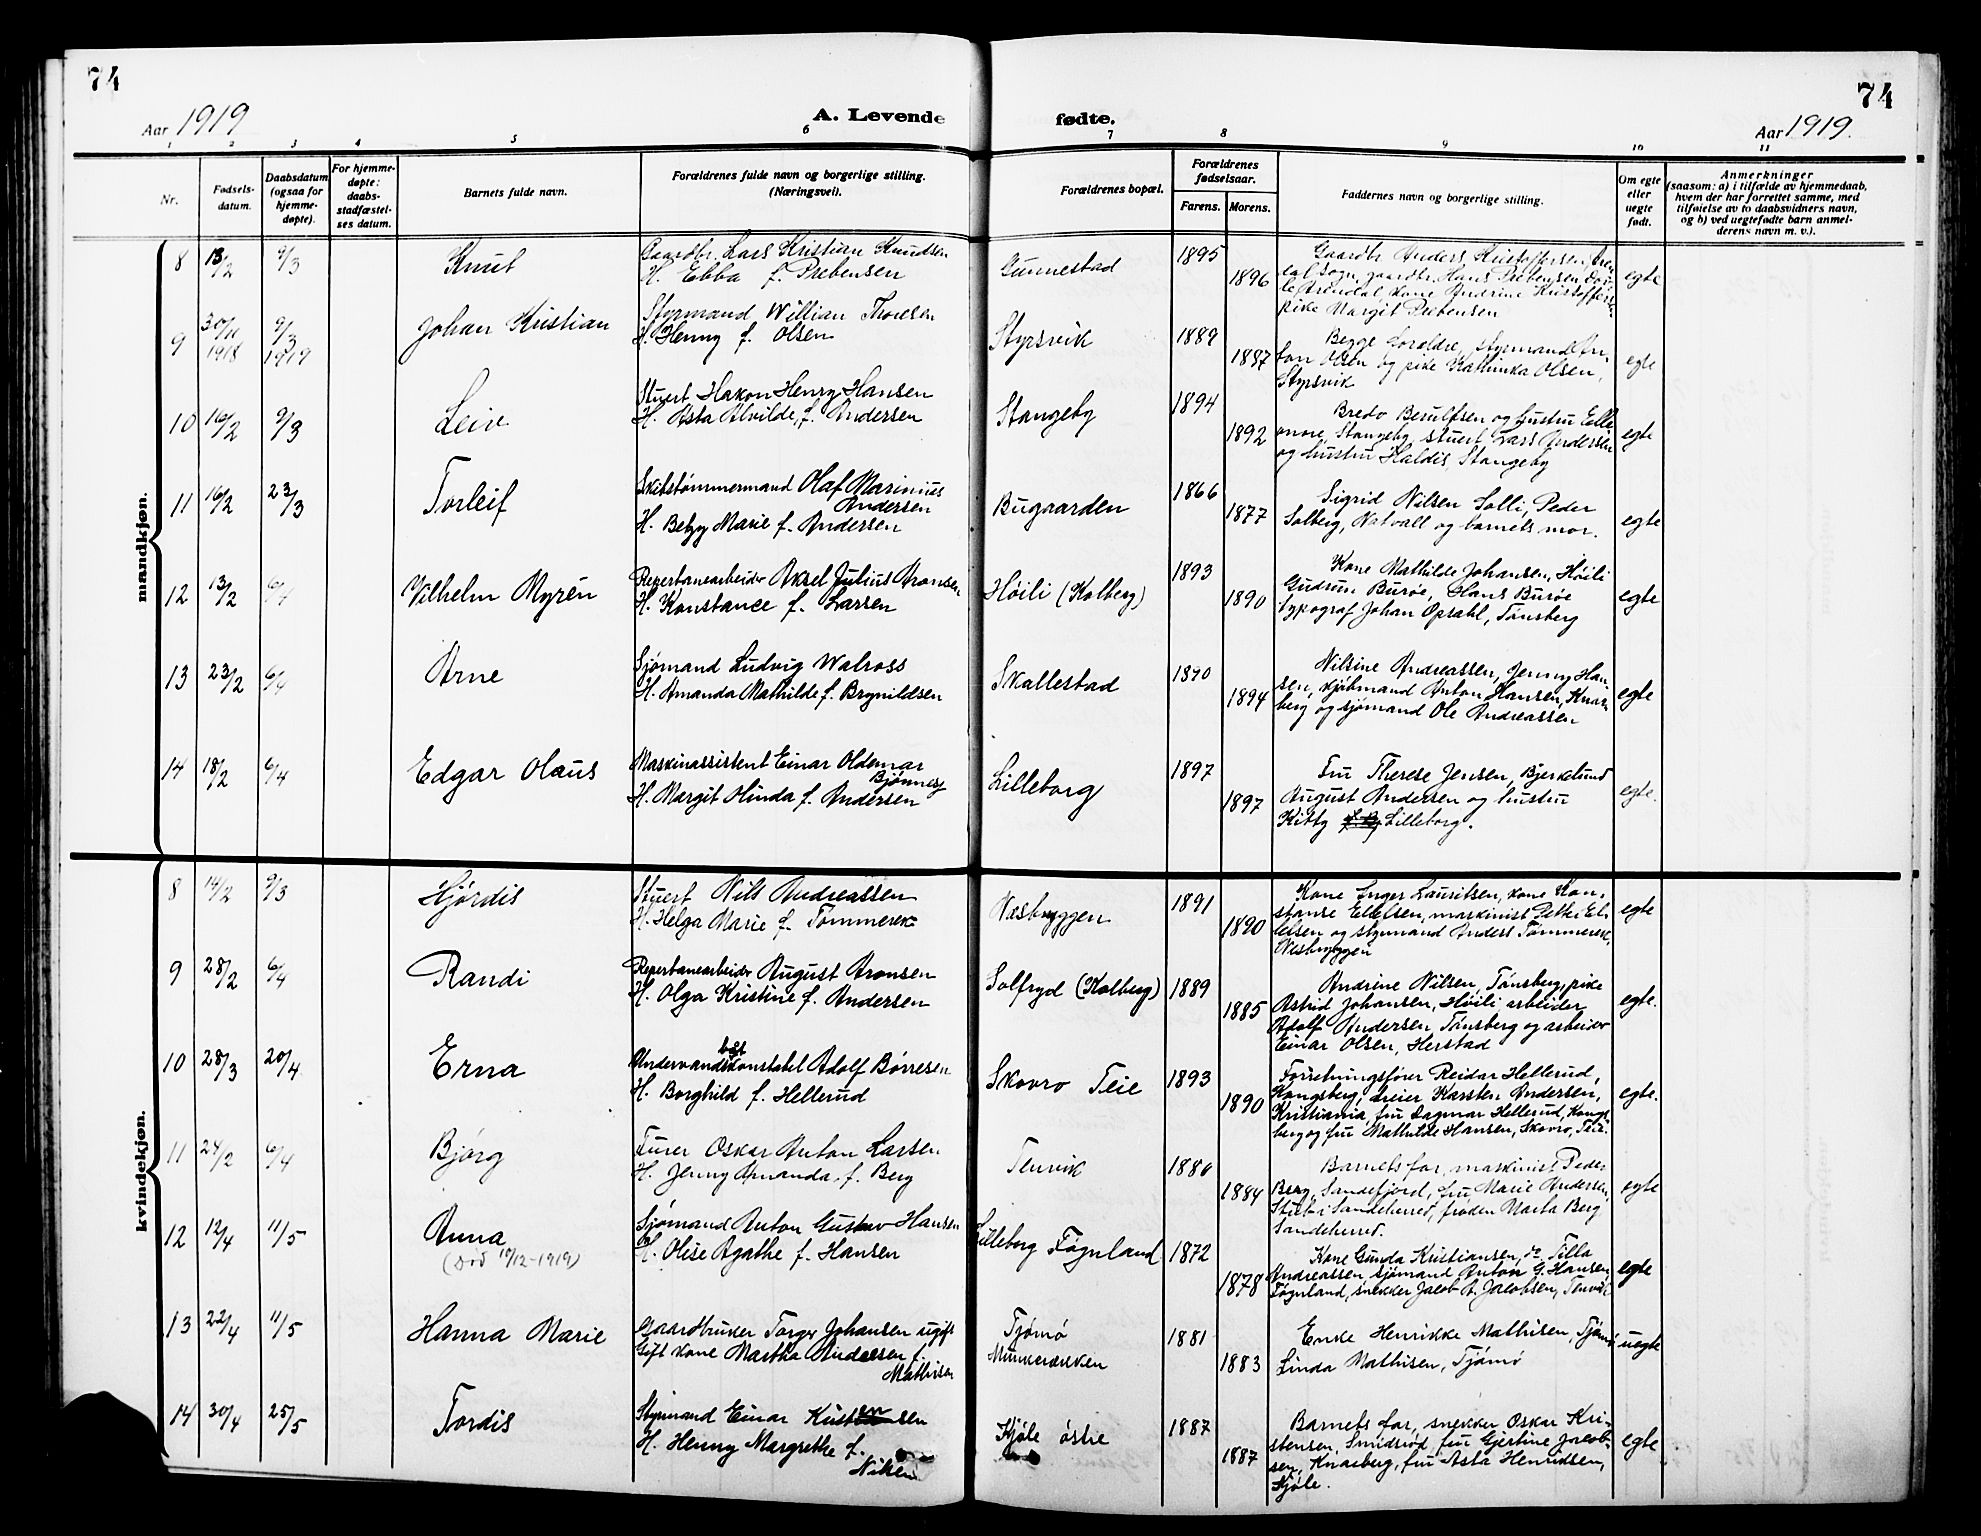 74
Aar 1919
A. Levende fødte.
Aar 1919.
74
1 2 3 4 5 6 7 8 9 10 11
Nr.
Fødsels-
datum.
Daabsdatum
(ogsaa for
hjemme-
døpte).
For hjemme-
døpte:
daabs-
stadfæstel-
ses datum.
Barnets fulde navn.
Forældrenes fulde navn og borgerlige stilling.
(Næringsvei).
Forældrenes bopæl.
Forældrenes
fødselsaar.
Farens. Morens.
Faddernes navn og borgerlige stilling.
Om egte
eller
uegte
født.
Anmerkninger
(saasom: a) i tilfælde av hjemmedaab,
hvem der har forrettet samme, med
tilføielse av to daabsvidners navn,
og b) ved uegtefødte barn anmel-
derens navn m. v.).
mandkjøn.
8 13/2 9/3 Knut
Gaardbr. Lars Kristian Knudsen
H. Ebba f. Prebensen
Gunnestad 1895 1896
Gaardbr Anders Kristoffersen,
sogn, gaardbr. Hans Prebensen
Arendal, kone Andrine Kristoffersen
pike Margit Prebensen
egte
9 30/11 1918 9/3 1919 Johan Kristian
Styrmand Willian Thoresen
H. Henny f. Olsen
Styrsvik 1889 1887
Begge foreldre, styrmand An-
ton Olsen og pike Kathinka Olsen,
Styrsvik
egte
10 16/2 9/3 Leiv
Stuert Hakon Henry Hansen
H. Asta Alvilde, f. Andersen
Stangeby 1894 1892
Bredo Berulfsen og hustru Elle-
onore, Stangeby, stuert Lars Andersen
og hustru Haldis, Stangeby
egte
11 16/2 23/3 Torleif
Skibstømmermand Olaf Marinius
Andersen
H. Betzy Marie f. Andersen
Bugaarden 1866 1877
Sigrid Nilsen Solli, Peder
Solberg, Natvall og barnets mor.
egte
12 13/2 6/4 Vilhelm Myrén
Reperbanearbeider Aksel Julius Aronsen
H. Konstance f. Larsen
Høili (Kolberg) 1893 1890
Kone Mathilde Johansen, Høili
Gudrun Burøe, Hans Burøe
typograf Johan Opsahl, Tønsberg
egte
13 23/2 6/4 Arne
Sjømand Ludvig Walross
H. Amanda Mathilde f. Brynildsen
Skallestad 1890 1894
Nilsine Andreassen, Jenny Han-
sen, kjøbmand Anton Hansen, Knar-
berg og sjømand Ole Andreassen
egte
14 18/2 6/4 Edgar Olaus
Maskinassistent Einar Oldemar
Bjønnes
H. Margit Olinda f. Andersen
Lilleborg 1897 1897
Fru Therese Jensen, Bjerkelund
August Andersen og hustru
Kitty Lilleborg.
egte.
kvindekjøn.
8 14/2 9/3 Hjørdis
Stuert Nils Andreassen
H. Helga Marie f. Tømmerek
Næsbryggen 1891 1890
Kone Inger Lauritsen, kone Kon-
stanse Ellefsen, maskinist Petter El-
lefsen og styrmand Anders Tømmerek,
Nesbryggen
egte
9 28/2 6/4 Randi
Reperbanearbeider August Aronsen
H. Olga Kristine f. Andersen
Solfryd (Kolberg) 1889 1885
Andrine Nilsen, Tønsberg, pike
Astrid Johansen, Høili arbeider
Adolf Andersen, Tønsberg og arbeider
Einar Olsen, Herstad
egte.
10 28/3 20/4 Erna
Undervandsbåtkonstabel Adolf Børresen
H. Borghild f. Hellerud
Skovro Teie 1893 1890
Forretningsfører Reidar Hellerud,
Kongsberg, dreier Karsten Andersen,
Kristiania, fru Dagmar Hellerud, Kongs-
berg og fru Mathilde Hansen, Skovro, Teie.
egte.
11 24/2 6/4 Bjørg
Furer Oskar Anton Larsen
H. Jenny Amanda, f. Berg
Tenvik 1880 1884
Barnets far, maskinist Peder
Berg, Sandefjord, fru Marie Andersen,
Stub i Sandeherred, frøken Marta Berg
Sandeherred.
egte
12 12/4 11/5 Anna
(død 10/12-1919)
Sjømand Anton Gustav Hansen
H. Olise Agathe f. Hansen
Lilleborg Føgnland 1872 1878
Kone Gunda Kristiansen, do Tilla
Andreassen, sjømand Anton G. Hansen
Føgnland, snekker Jacob A. Jacobsen, Tenvik
egte
13 22/4 11/5 Hanna Marie
Gaardbruker Torger Johansen ugift
Gift kone Martha Andersen f.
Mathisen
Tjømø
Munkerækken 1881 1883
Enke Henrikke Mathisen, Tjømø
Linda Mathisen, Tjømø
uegte
14 30/4 25/5 Tordis
Styrmand Einar Kristensen
H. Henny Margrethe f.
Nilsen
Kjøle østre 1887 1887
Barnets far, snekker Oskar Kri-
stensen, Smidsrød, fru Gjertine Jacob-
sen, Knarberg, fru Asta Henriksen,
Kjøle.
egte